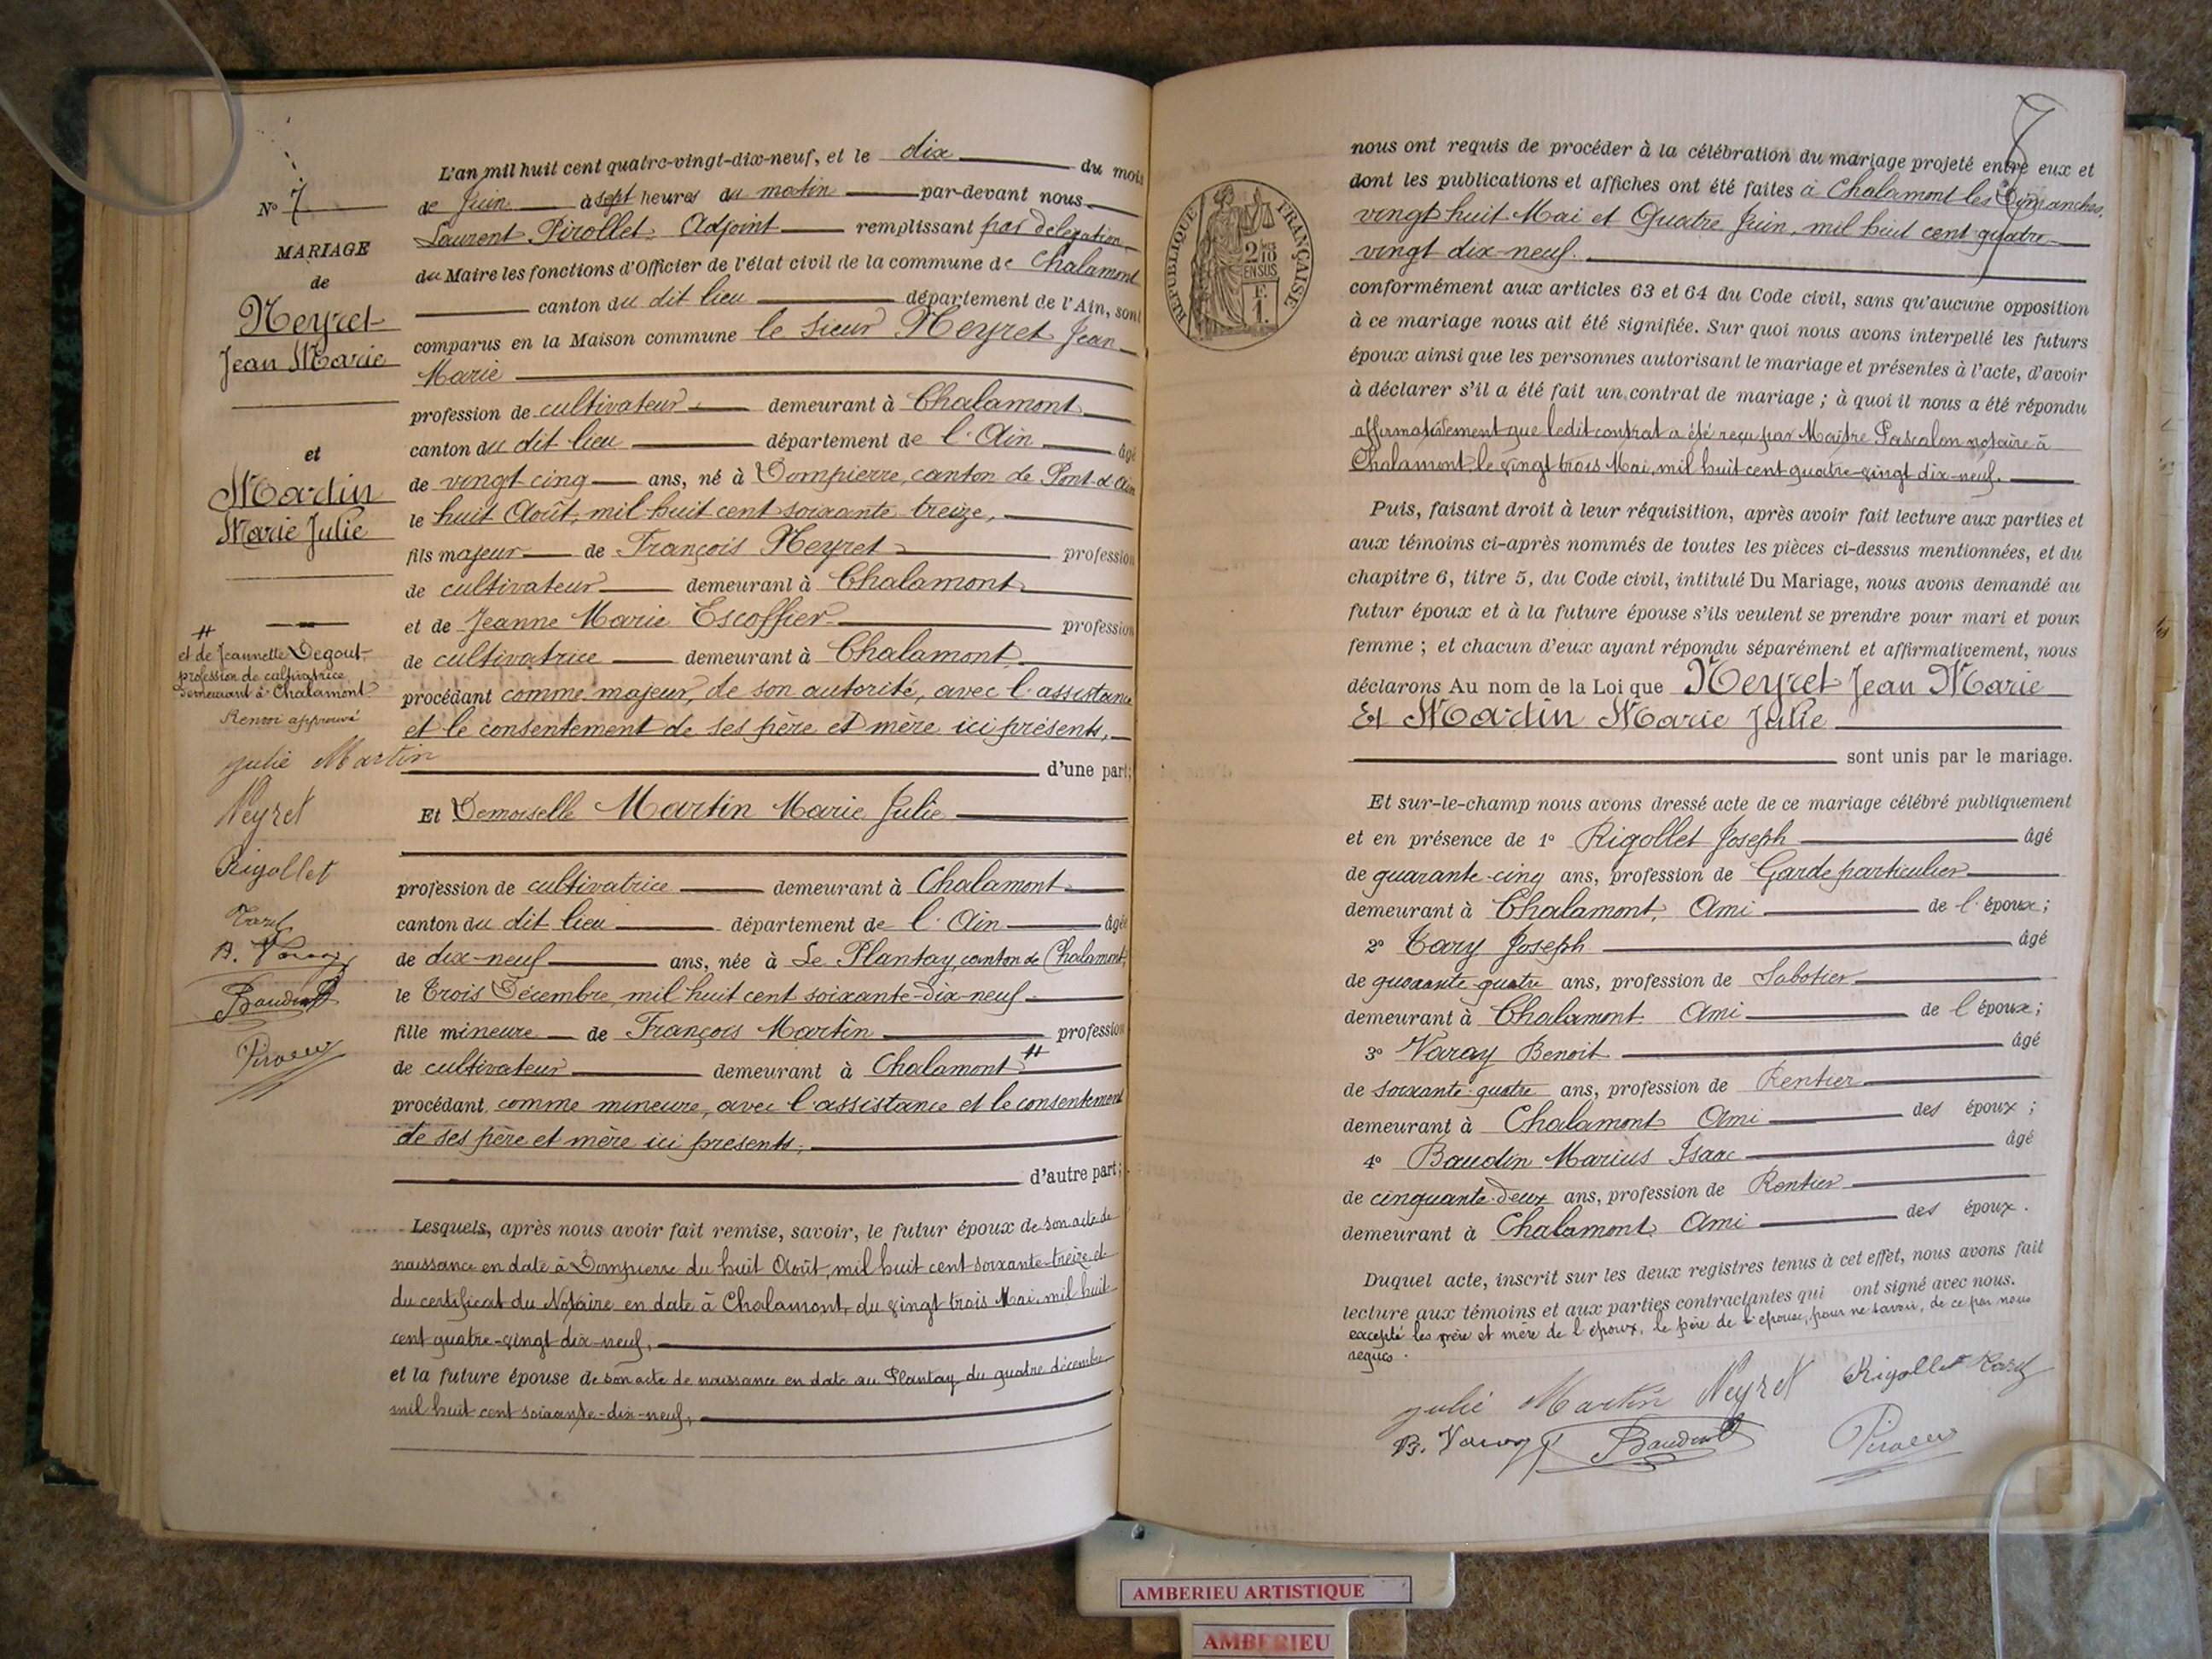 N° 7
MARIAGE
de
Neyret
Jean Marie
et
Martin
Marie Julie
#
et de Jeannette Degout
profession de cultivatrice
demeurant à Chalamont
Renvoi approuvé
julie Martin
Neyret
Rigollet
Tary
B. Varay
Baudin
L'an mil huit cent quatre-vingt-dix-neuf, et le dix du mois
de Juin à sept heures du matin par-devant nous
Laurent Pirollet Adjoint remplissant par délégation
du Maire les fonctions d'Officier de l'état civil de la commune de Chalamont
canton du dit lieu département de l'Ain, sont
comparus en la Maison commune le sieur Neyret Jean
Marie
profession de cultivateur demeurant à Chalamont
canton du dit lieu département de l'Ain âgé
de vingt cinq ans, né à Dompierre, canton de Pont d'Ain
le huit Août, mil huit cent soixante treize,
fils majeur de François Neyret profession
de cultivateur demeurant à Chalamont
et de Jeanne Marie Escoffier profession
de cultivatrice demeurant à Chalamont
procédant comme majeur, de son autorité, avec l'assistance
et le consentement de ses père et mère ici présents,
d'une part;
Et Demoiselle Martin Marie Julie
profession de cultivatrice demeurant à Chalamont
canton du dit lieu département de l'Ain âgée
de dix-neuf ans, née à Le Plantay, canton de Chalamont,
le trois Décembre, mil huit cent soixante-dix-neuf
fille mineure de François Martin profession
de cultivateur demeurant à Chalamont #
procédant comme mineure, avec l'assistance et le consentement
de ses père et mère ici présents,
d'autre part;
Lesquels, après nous avoir fait remise, savoir, le futur époux de son acte de
naissance en date à Dompierre du huit Août, mil huit cent soixante-treize et
du certificat du Notaire en date à Chalamont, du vingt trois Mai, mil huit
cent quatre-vingt dix-neuf,
et la future épouse de son acte de naissance en date au Plantay du quatre décembre
mil huit cent soixante-dix-neuf,
7
RÉPUBLIQUE FRANÇAISE
2/10
EN SUS
F.
1.
nous ont requis de procéder à la célébration du mariage projeté entre eux et
dont les publications et affiches ont été faites à Chalamont les Dimanches,
vingt huit Mai et Quatre Juin, mil huit cent quatre
vingt dix-neuf.
conformément aux articles 63 et 64 du Code civil, sans qu'aucune opposition
à ce mariage nous ait été signifiée. Sur quoi nous avons interpellé les futurs
époux ainsi que les personnes autorisant le mariage et présentes à l'acte, d'avoir
à déclarer s'il a été fait un contrat de mariage ; à quoi il nous a été répondu
affirmativement que ledit contrat a été reçu par Maître Pascalon notaire à
Chalamont, le vingt trois Mai, mil huit cent quatre-vingt dix-neuf.
Puis, faisant droit à leur réquisition, après avoir fait lecture aux parties et
aux témoins ci-après nommés de toutes les pièces ci-dessus mentionnées, et du
chapitre 6, titre 5, du Code civil, intitulé Du Mariage, nous avons demandé au
futur époux et à la future épouse s'ils veulent se prendre pour mari et pour
femme ; et chacun d'eux ayant répondu séparément et affirmativement, nous
déclarons Au nom de la Loi que Neyret Jean Marie
Et Martin Marie Julie
sont unis par le mariage.
Et sur-le-champ nous avons dressé acte de ce mariage célébré publiquement
et en présence de 1° Rigollet Joseph âgé
de quarante-cinq ans, profession de Garde particulier
demeurant à Chalamont, Ami de l'époux;
2° Tary Joseph âgé
de quarante-quatre ans, profession de Sabotier
demeurant à Chalamont. Ami de l'époux;
3° Varay Benoit âgé
de soixante-quatre ans, profession de Rentier
demeurant à Chalamont Ami des époux ;
4° Baudin Marius Isaac âgé
de cinquante-deux ans, profession de Rentier
demeurant à Chalamont. Ami des époux.
Duquel acte, inscrit sur les deux registres tenus à cet effet, nous avons fait
lecture aux témoins et aux parties contractantes qui ont signé avec nous.
excepté les père et mère de l'époux, le père de l'épouse, pour ne savoir, de ce par nous
requis.
julie Martin Neyret Rigollet Tary
B. Varay Baudin
AMBERIEU ARTISTIQUE
AMBERIEU